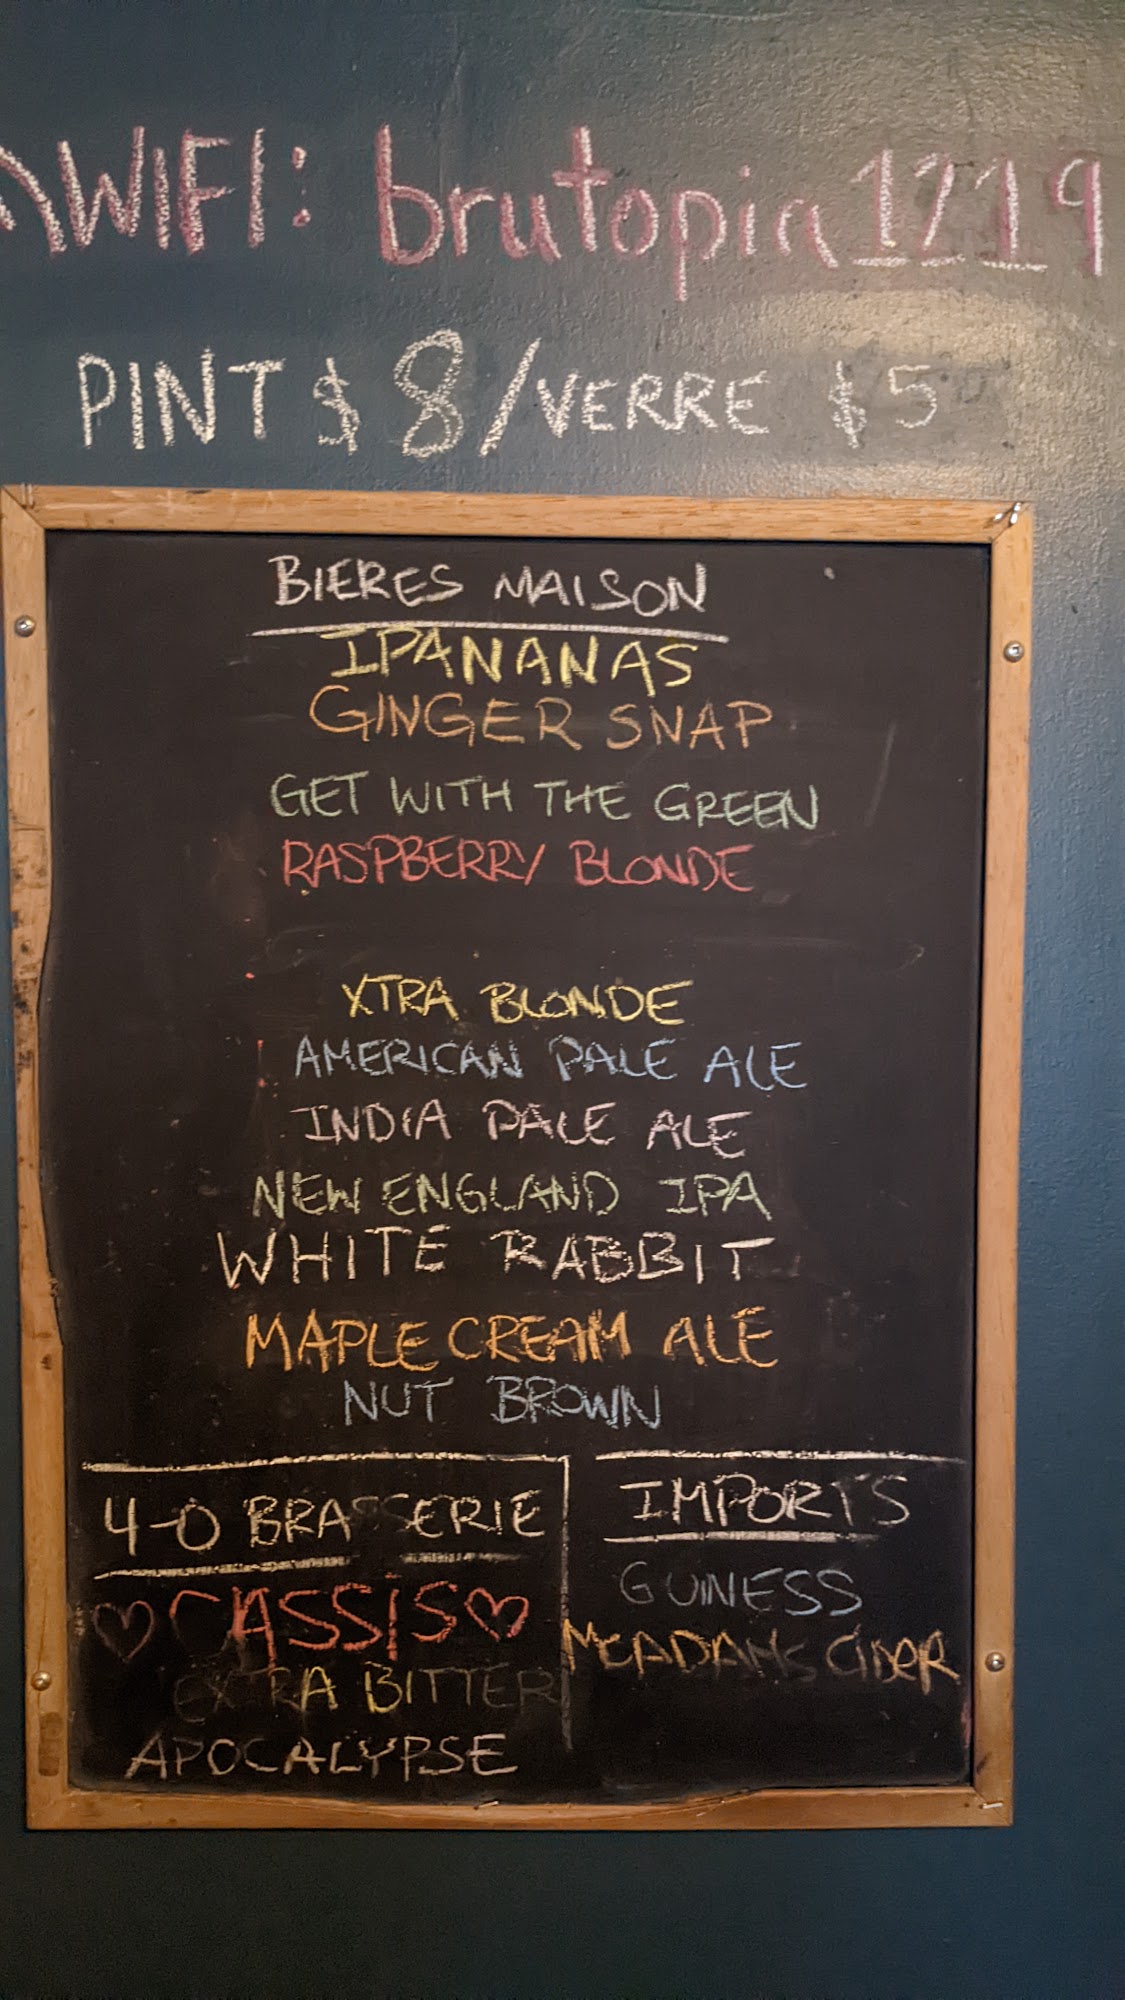 WIFI: brutopia1219
PINT $8/VERRE $5
BIERES MAISON
IPANANAS
GINGER SNAP
GET WITH THE GREEN
RASPBERRY BLONDE
XTRA BLONDE
AMERICAN PALE ALE
INDIA PALE ALE
NEW ENGLAND IPA
WHITE RABBIT
MAPLE CREAM ALE
NUT BROWN
4-0 BRASSERIE
♡CASSIS♡
EXTRA BITTER
APOCALYPSE
IMPORTS
GUINESS
MCADAMS CIDER